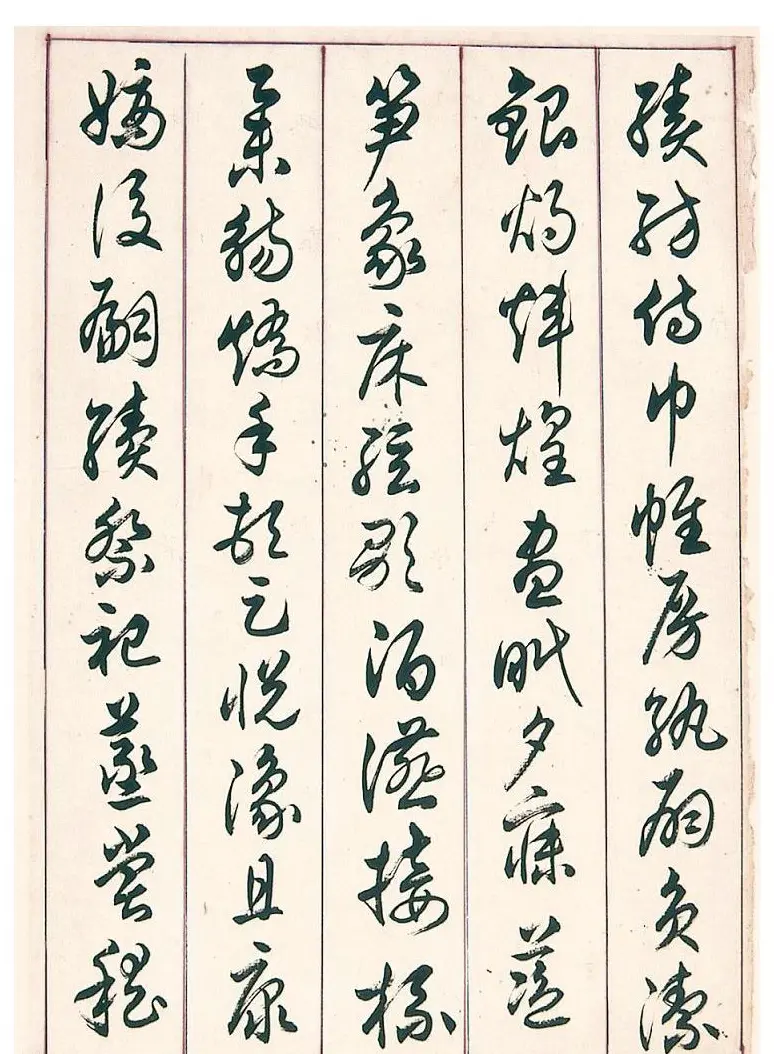 績紡侍巾帷房紈扇員潔
銀燭煒煌晝眠夕寐藍
筍象床絃歌酒讌接杯
舉觴矯手頓足悅豫且康
嫡後嗣續祭祀蒸嘗稽